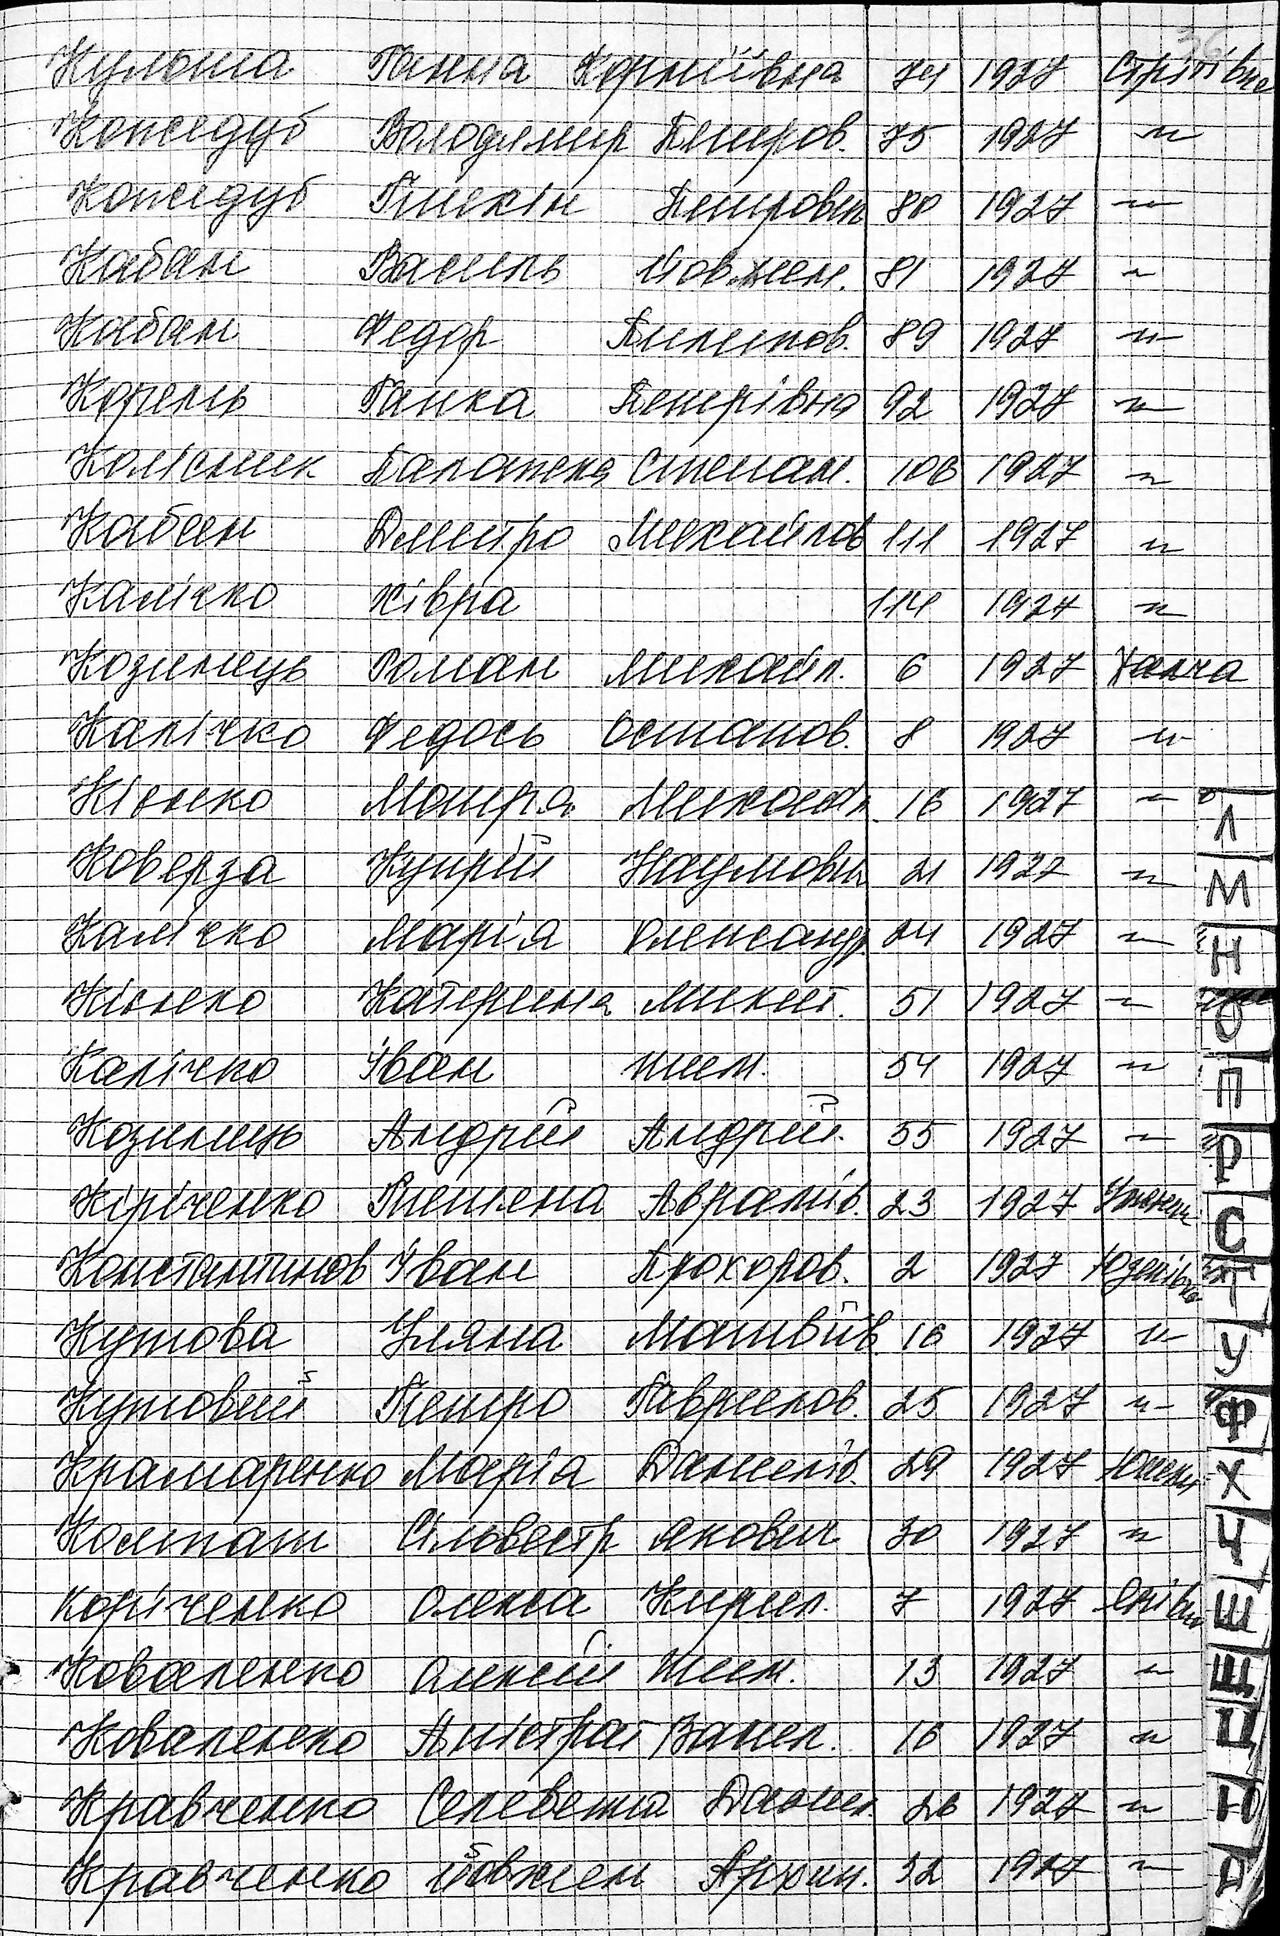 36
Кульша Ганна Корніївна 74 1927 Стрітівка
Кожедуб Володимир Петров. 75 1927 -"-
Кожедуб Петрович 80 1927 -"-
Кабан Василь Йовхем. 81 1927 "
Кабан Федор Пилипов. 89 1927 -"-
Корель Ганка Петрівна 92 1927 -"-
Колісник Палажка Степан. 106 1927 "
Кабан Дмитро Михайлов 111 1927 "
Калічко Хівра 114 1927 "
Козинець Роман Михайл. 6 1927 Халча
Калічко Федось Остапов. 8 1927 -"-
Кіонко Мотря Михайл. 16 1927 "
Коверза Купрій Наумович 21 1927 "
Калічко Марія Олександр. 24 1927 "
Кіонко Катерина Микит. 51 1927 "
Калічко Іван 54 1927 "
Козинець Андрій Андрій. 55 1927 "
Кіріченко Тетяна Аврамів. 23 1927
Константинов Іван Прохоров. 2 1927 Юзефівка
Кутова Уляна Матвіїв 16 1927 -"-
Кутовий Петро Гаврилов. 25 1927 -"-
Крамаренко Марія Данилів. 29 1927
Компат Сільвестр Якович 30 1927 "
Коріченко Олекса Кирил. 7 1927
Коваленко Олексій 13 1927 "
Коваленко Данил. 16 1927 "
Кравченко Данил. 26 1927 "
Кравченко Йовхем Архип. 32 1927 "
Л
М
Н
О
П
Р
С
Т
У
Ф
Х
Ч
Ш
Щ
Ц
Ю
Я